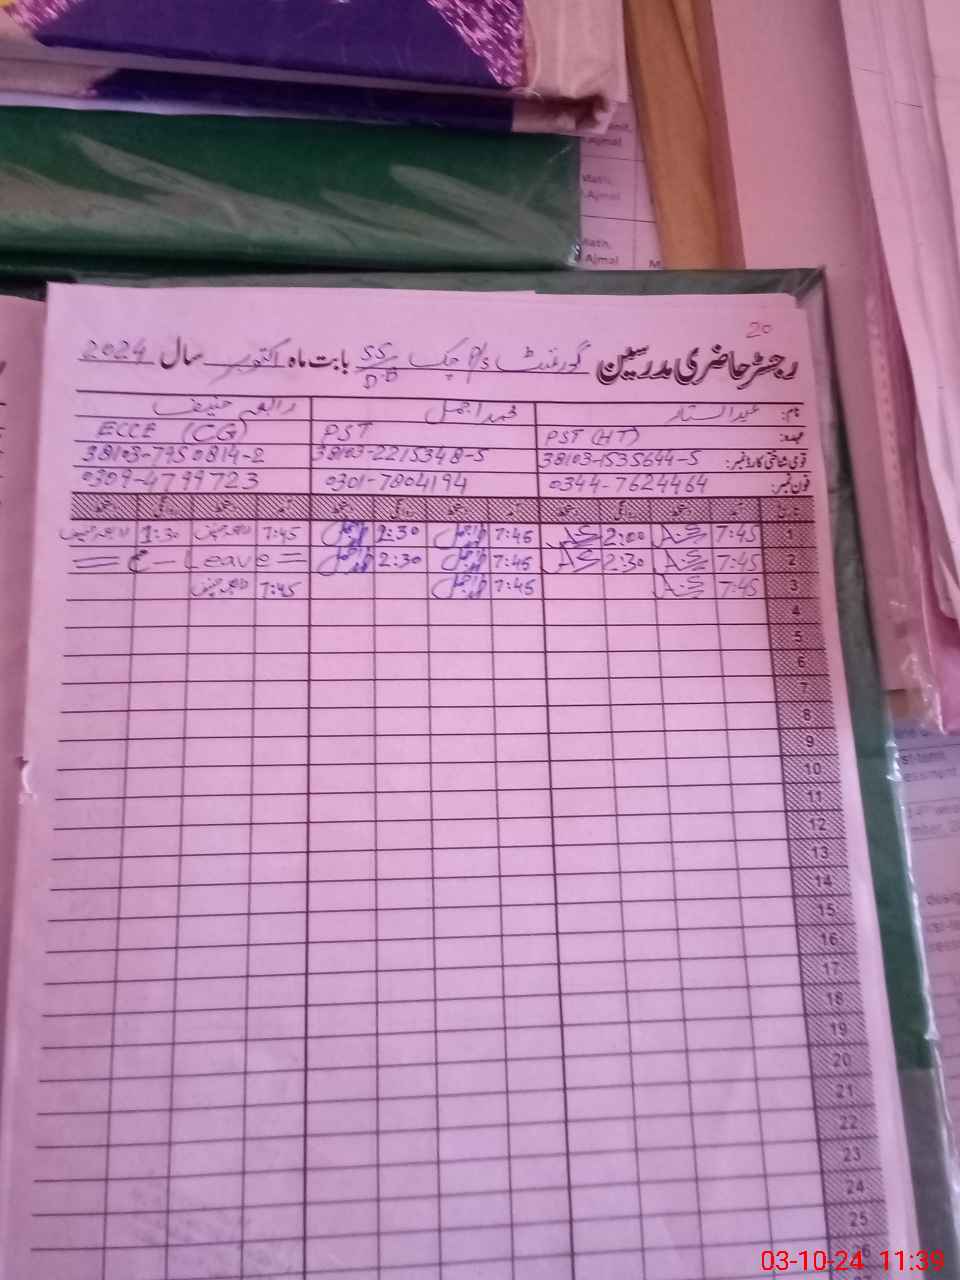 20
رجسٹر حاضری مدرسین گورنمنٹ P/S چک 55/D.B بابت ماہ اکتوبر سال 2024
نام: عبدالستار محمد اجمل رابعہ حنیف
عہدہ: PST (HT) PST ECCE (CG)
قومی شناختی کارڈ نمبر: 38103-1535644-5 38103-2215348-5 38103-7950814-2
فون نمبر: 0344-7624464 0301-7804194 0309-4799723
تاریخ آمد دستخط روانگی دستخط آمد دستخط روانگی دستخط آمد دستخط روانگی دستخط
1 7:45 A.S 2:00 A.S 7:45 اجمل 2:30 اجمل 7:45 رابعہ حنیف 1:30 رابعہ حنیف
2 7:45 A.S 2:30 A.S 7:45 اجمل 2:30 اجمل = Leave — =
3 7:45 A.S 7:45 اجمل 7:45 رابعہ حنیف
4
5
6
7
8
9
10
11
12
13
14
15
16
17
18
19
20
21
22
23
24
25
Ajmal
Math,
Ajmal
Math,
Ajmal
03-10-24 11:39